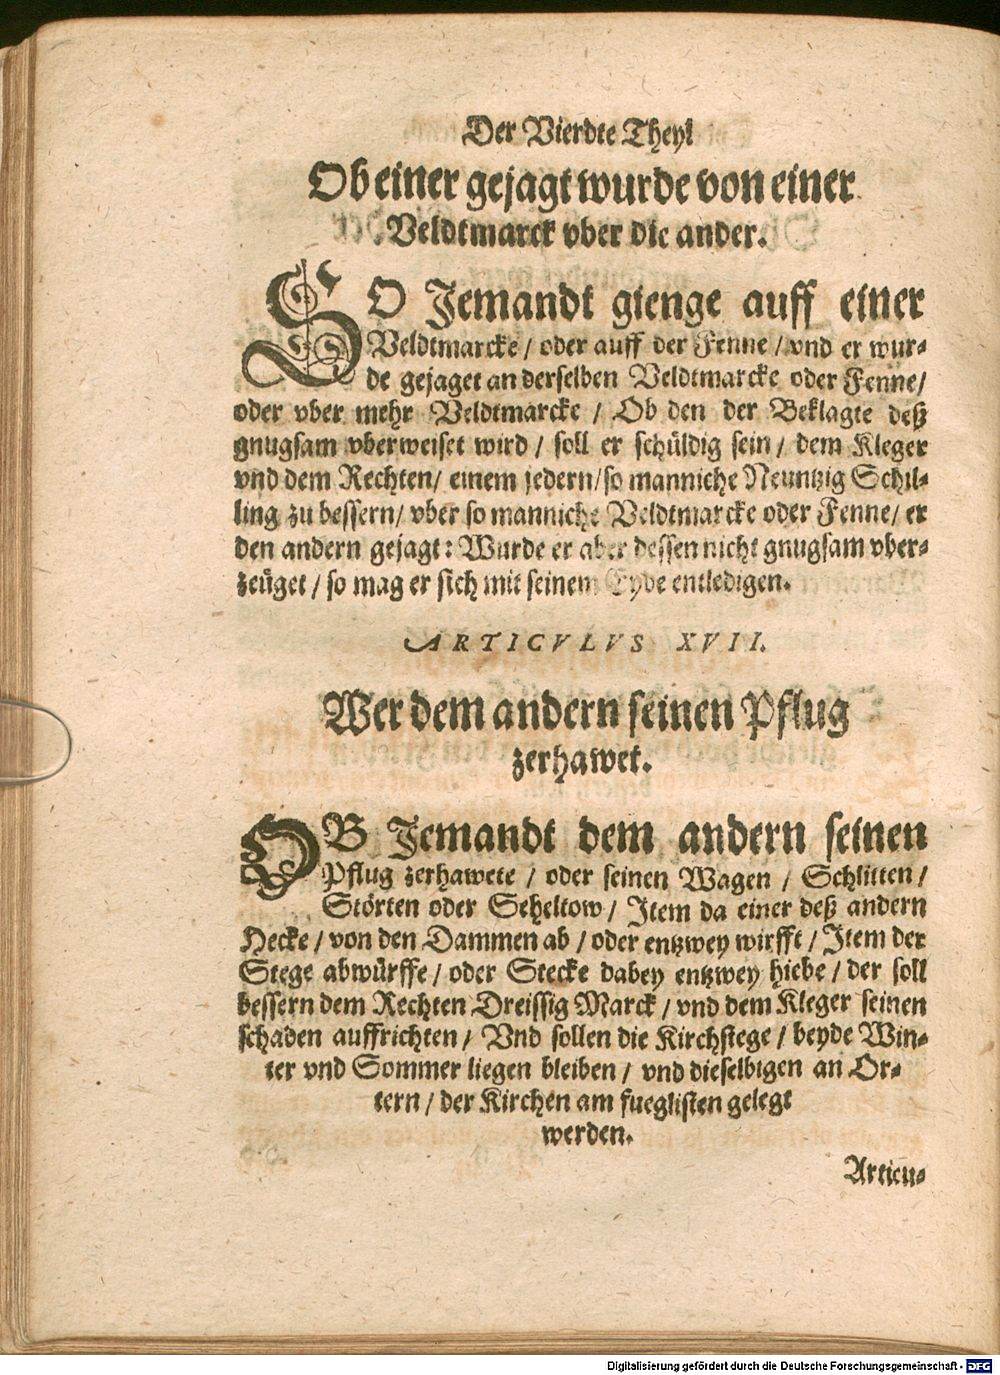 Der Vierdte Theyl
Ob einer gejagt wurde von einer
Veldtmarck vber die ander.
SO Jemandt gienge auff einer
Veldtmarcke / oder auff der Fenne / vnd er wur⸗
de gejaget an derselben Veldtmarcke oder Fenne /
oder vber mehr Veldtmarcke / Ob den der Beklagte deß
gnugsam vberweiset wird / soll er schüldig sein / dem Kleger
vnd dem Rechten / einem jedern / so manniche Neuntzig Schil⸗
ling zu bessern / vber so manniche Veldtmarcke oder Fenne / er
den andern gejagt: Wurde er aber dessen nicht gnugsam vber⸗
zeüget / so mag er sich mit seinem Eyde entledigen.
ARTICVLVS XVII.
Wer dem andern seinen Pflug
zerhawet.
OB Jemandt dem andern seinen
Pflug zerhawete / oder seinen Wagen / Schlitten /
Störten oder Seheltow / Item da einer deß andern
Hecke / von den Dammen ab / oder entzwey wirfft / Item der
Stege abwürffe / oder Stecke dabey entzwey hiebe / der soll
bessern dem Rechten Dreissig Marck / vnd dem Kleger seinen
schaden auffrichten / Vnd sollen die Kirchstege / beyde Win⸗
ter vnd Sommer liegen bleiben / vnd dieselbigen an Or⸗
tern / der Kirchen am fueglisten gelegt
werden.
Articu⸗
Digitalisierung gefördert durch die Deutsche Forschungsgemeinschaft - DFG